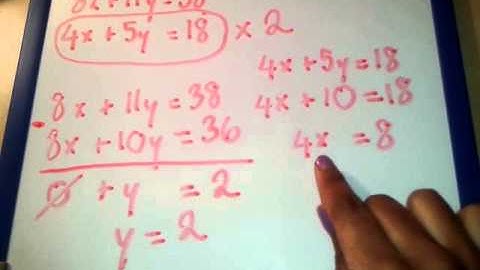 8x+11y=38
4x+5y=18 × 2
8x+11y=38
- 8x+10y=36
0 +y =2
y=2
4x+5y=18
4x+10=18
4x =8